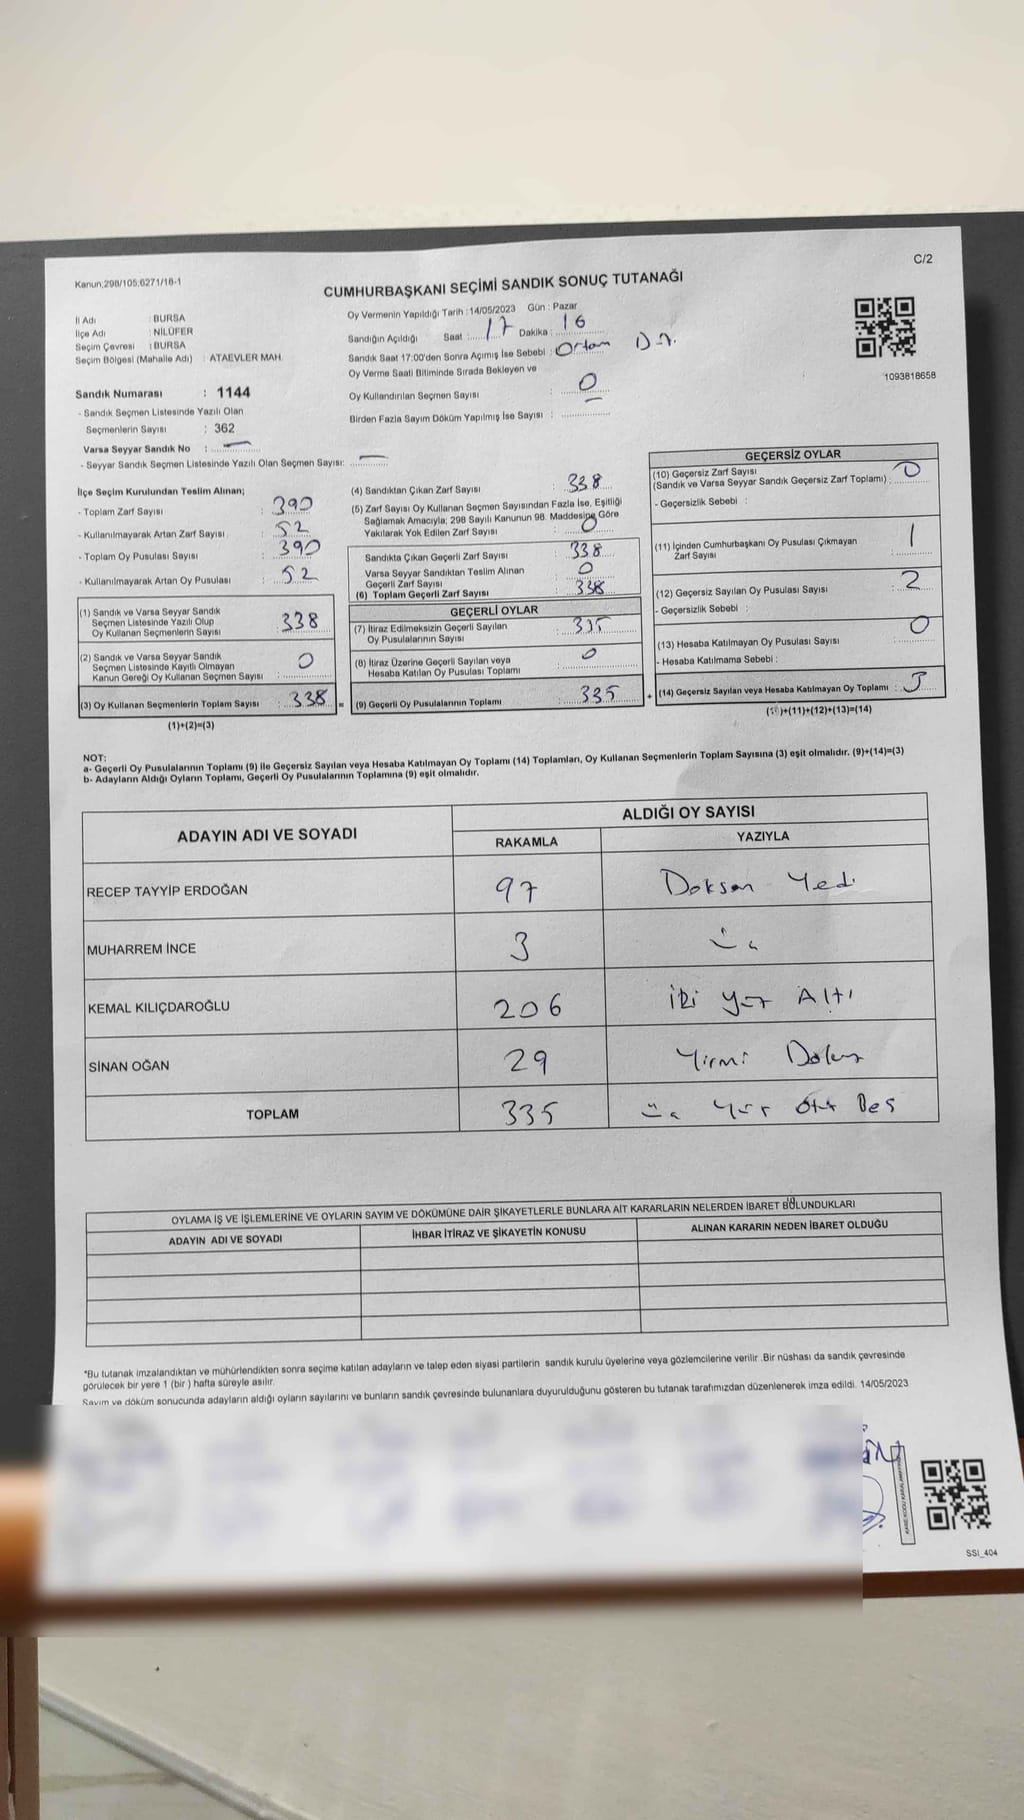 Kanun:298/105;6271/18-1
C/2
CUMHURBAŞKANI SEÇİMİ SANDIK SONUÇ TUTANAĞI
İl Adı : BURSA
İlçe Adı : NİLÜFER
Seçim Çevresi : BURSA
Seçim Bölgesi (Mahalle Adı) : ATAEVLER MAH.
Sandık Numarası : 1144
- Sandık Seçmen Listesinde Yazılı Olan
Seçmenlerin Sayısı : 362
Varsa Seyyar Sandık No : —
- Seyyar Sandık Seçmen Listesinde Yazılı Olan Seçmen Sayısı: —
Oy Vermenin Yapıldığı Tarih : 14/05/2023 Gün : Pazar
Sandığın Açıldığı Saat : 17 Dakika : 16
Sandık Saat 17:00'den Sonra Açımış İse Sebebi : Ortam
Oy Verme Saati Bitiminde Sırada Bekleyen ve
Oy Kullandırılan Seçmen Sayısı : 0
Birden Fazla Sayım Döküm Yapılmış İse Sayısı :
1093818658
İlçe Seçim Kurulundan Teslim Alınan;
- Toplam Zarf Sayısı : 390
- Kullanılmayarak Artan Zarf Sayısı : 52
- Toplam Oy Pusulası Sayısı : 390
- Kullanılmayarak Artan Oy Pusulası : 52
(1) Sandık ve Varsa Seyyar Sandık
Seçmen Listesinde Yazılı Olup
Oy Kullanan Seçmenlerin Sayısı : 338
(2) Sandık ve Varsa Seyyar Sandık
Seçmen Listesinde Kayıtlı Olmayan
Kanun Gereği Oy Kullanan Seçmen Sayısı : 0
(3) Oy Kullanan Seçmenlerin Toplam Sayısı : 338 =
(1)+(2)=(3)
(4) Sandıktan Çıkan Zarf Sayısı : 338
(5) Zarf Sayısı Oy Kullanan Seçmen Sayısından Fazla İse, Eşitliği
Sağlamak Amacıyla; 298 Sayılı Kanunun 98. Maddesine Göre
Yakılarak Yok Edilen Zarf Sayısı : 0
Sandıkta Çıkan Geçerli Zarf Sayısı : 338
Varsa Seyyar Sandıktan Teslim Alınan
Geçerli Zarf Sayısı : 0
(6) Toplam Geçerli Zarf Sayısı : 338
GEÇERLİ OYLAR
(7) İtiraz Edilmeksizin Geçerli Sayılan
Oy Pusulalarının Sayısı : 335
(8) İtiraz Üzerine Geçerli Sayılan veya
Hesaba Katılan Oy Pusulası Toplamı : 0
(9) Geçerli Oy Pusulalarının Toplamı : 335 +
GEÇERSİZ OYLAR
(10) Geçersiz Zarf Sayısı
(Sandık ve Varsa Seyyar Sandık Geçersiz Zarf Toplamı) : 0
- Geçersizlik Sebebi :
(11) İçinden Cumhurbaşkanı Oy Pusulası Çıkmayan
Zarf Sayısı 1
(12) Geçersiz Sayılan Oy Pusulası Sayısı : 2
- Geçersizlik Sebebi :
(13) Hesaba Katılmayan Oy Pusulası Sayısı : 0
- Hesaba Katılmama Sebebi :
(14) Geçersiz Sayılan veya Hesaba Katılmayan Oy Toplamı : 3
(10)+(11)+(12)+(13)=(14)
NOT:
a- Geçerli Oy Pusulalarının Toplamı (9) ile Geçersiz Sayılan veya Hesaba Katılmayan Oy Toplamı (14) Toplamları, Oy Kullanan Seçmenlerin Toplam Sayısına (3) eşit olmalıdır. (9)+(14)=(3)
b- Adayların Aldığı Oyların Toplamı, Geçerli Oy Pusulalarının Toplamına (9) eşit olmalıdır.
ADAYIN ADI VE SOYADI
ALDIĞI OY SAYISI
RAKAMLA YAZIYLA
RECEP TAYYİP ERDOĞAN 97 Doksan Yedi
MUHARREM İNCE 3 üç
KEMAL KILIÇDAROĞLU 206 İki yüz Altı
SİNAN OĞAN 29 Yirmi Dokuz
TOPLAM 335 üç Yüz Otuz Beş
OYLAMA İŞ VE İŞLEMLERİNE VE OYLARIN SAYIM VE DÖKÜMÜNE DAİR ŞİKAYETLERLE BUNLARA AİT KARARLARIN NELERDEN İBARET BULUNDUKLARI
ADAYIN ADI VE SOYADI İHBAR İTİRAZ VE ŞİKAYETİN KONUSU ALINAN KARARIN NEDEN İBARET OLDUĞU
*Bu tutanak imzalandıktan ve mühürlendikten sonra seçime katılan adayların ve talep eden siyasi partilerin sandık kurulu üyelerine veya gözlemcilerine verilir .Bir nüshası da sandık çevresinde
görülecek bir yere 1 (bir ) hafta süreyle asılır.
Sayım ve döküm sonucunda adayların aldığı oyların sayılarını ve bunların sandık çevresinde bulunanlara duyurulduğunu gösteren bu tutanak tarafımızdan düzenlenerek imza edildi. 14/05/2023
SSI_404